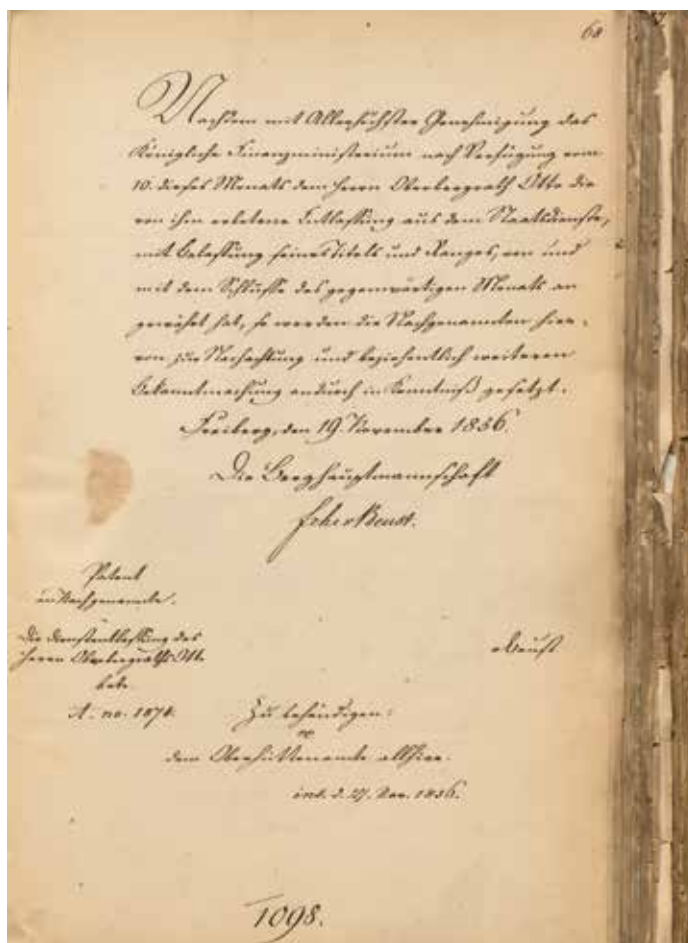 68
Nachdem mit Allerhöchster Genehmigung das
Königliche Finanzministerium nach Verfügung vom
10. dieses Monats dem Herrn Oberbergrath Otto die
von ihm erbetene Entlassung aus dem Staatsdienste,
mit Belassung seines Titels und Ranges, von und
mit dem Schlusse des gegenwärtigen Monats an
gewährt hat, so werden die Nachgenannten hier-
von zur Nachachtung und beziehentlich weiteren
Bekanntmachung andurch in Kenntniß gesetzt.
Freiberg, den 19. November 1856.
Die Berghauptmannschaft
Frhr v Beust.
Patent
an Nachgenannte.
Die Dienstentlassung des
Herrn Oberbergraths Otto
betr.
A. no. 1871.
Zu behändigen:
dem Oberhüttenamte allhier.
ins. d. 27. Nov. 1856.
1098.